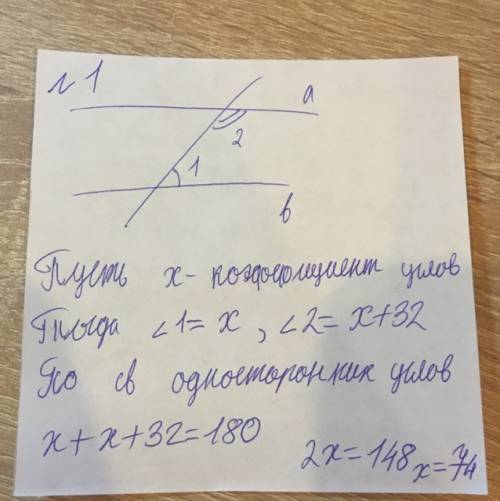 н 1
a
2
1
b
Пусть x - коэффициент углов
Тогда ∠1= x , ∠2= x+32
По св односторонних углов
x+x+32=180
2x=148 x=74